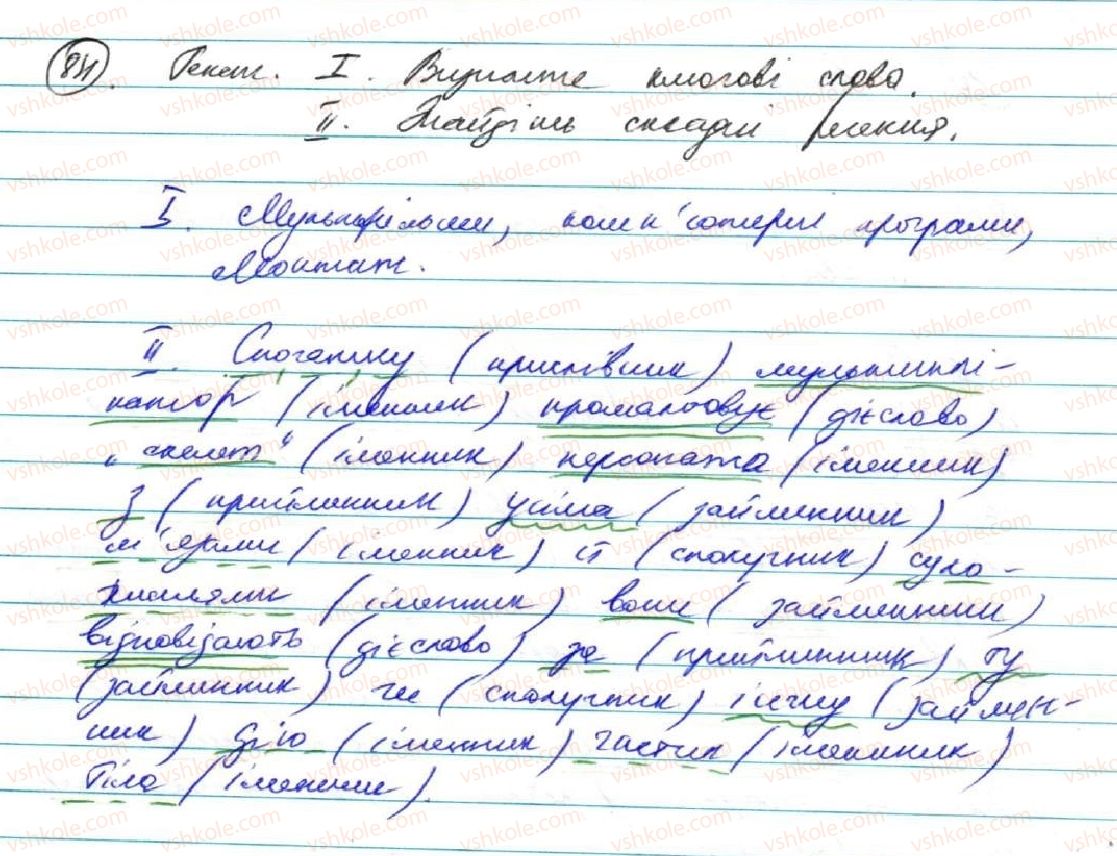 84. Текст. I. Випишіть ключові слова.
II. Знайдіть складні речення.
I. Мультфільми, комп'ютерні програми,
монтаж.
II. Спочатку (прислівник) мультиплі-
катор (іменник) промальовує (дієслово)
„скелет" (іменник) персонажа (іменник)
з (прийменник) усіма (займенник)
м'язами (іменник) й (сполучник) сухо-
жиллями (іменник) вони (займенник)
відповідають (дієслово) за (прийменник) ту
(займенник) чи (сполучник) іншу (займен-
ник) дію (іменник) частин (іменник)
тіла (іменник).